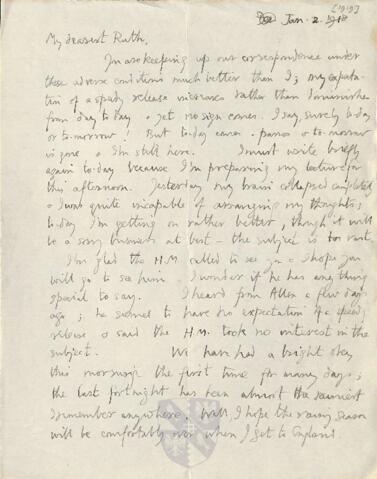 [1919]
Jan. 2. 1918
My dearest Ruth,
You are keeping up our correspondence under
these adverse conditions much better than I; my expecta-
tion of a speedy release increases rather than diminishes
from day to day & yet no sign comes. I say surely to-day
or to-morrow! But to-day comes & passes & to-morrow
is gone & I'm still here. I must write briefly
again to-day because I'm preparing my lecture for
this afternoon. Yesterday my brain collapsed completely
& I was quite incapable of arranging my thoughts;
to-day I'm getting on rather better, though it will
be a sorry business at best – the subject is so vast.
I'm glad the H.M. called to see you & I hope you
will go to see him. I wonder if he has anything
special to say. I heard from Allen a few days
ago; he seemed to have no expectation of a speedy
release & said the H.M. took no interest in the
subject. We have had a bright day
this morning the first time for many days;
the last fortnight has been almost the rainiest
I remember anywhere. Well I hope the rainy season
will be comfortably over when I get to England